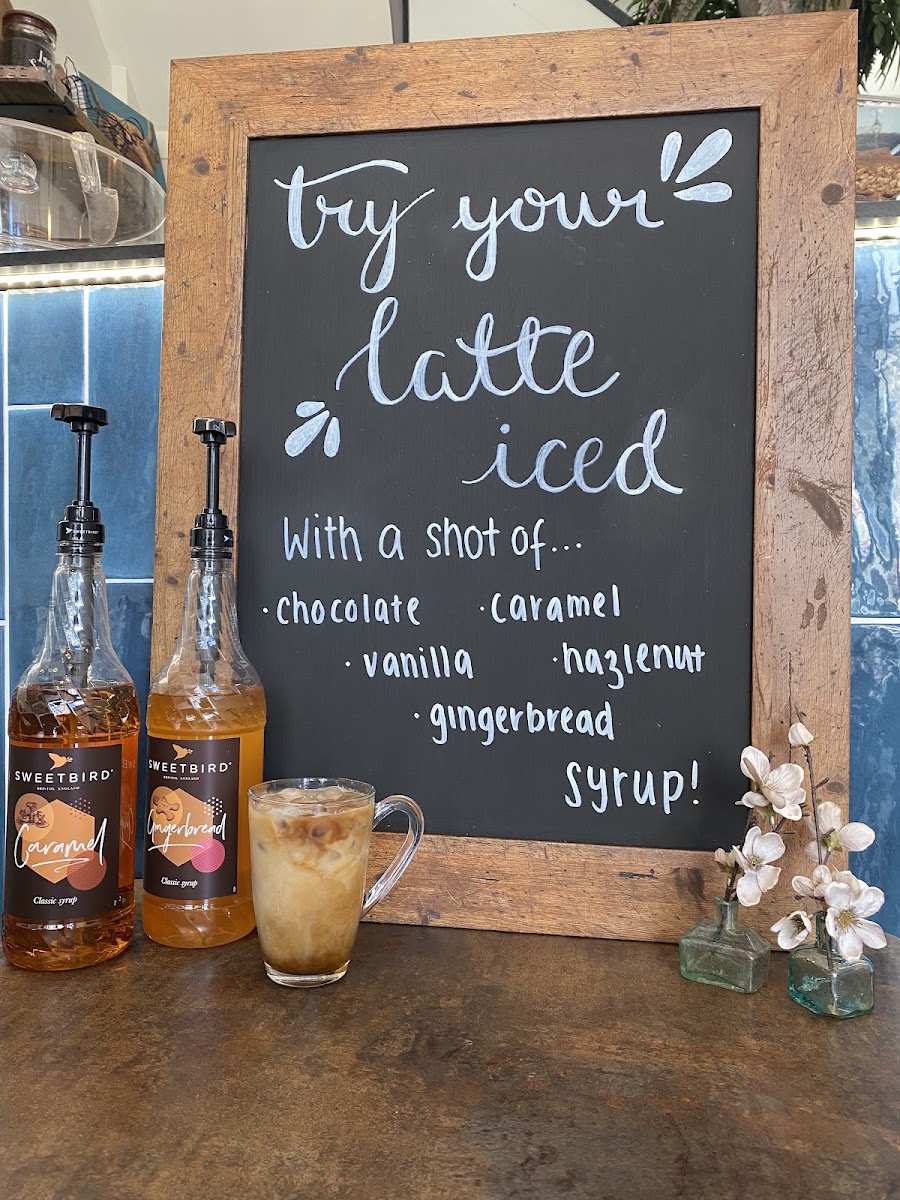 try your
latte
iced
With a shot of...
· chocolate · caramel
· vanilla · hazlenut
· gingerbread
syrup!
SWEETBIRD
BRISTOL ENGLAND
Caramel
Classic syrup
SWEETBIRD
BRISTOL ENGLAND
Gingerbread
Classic syrup